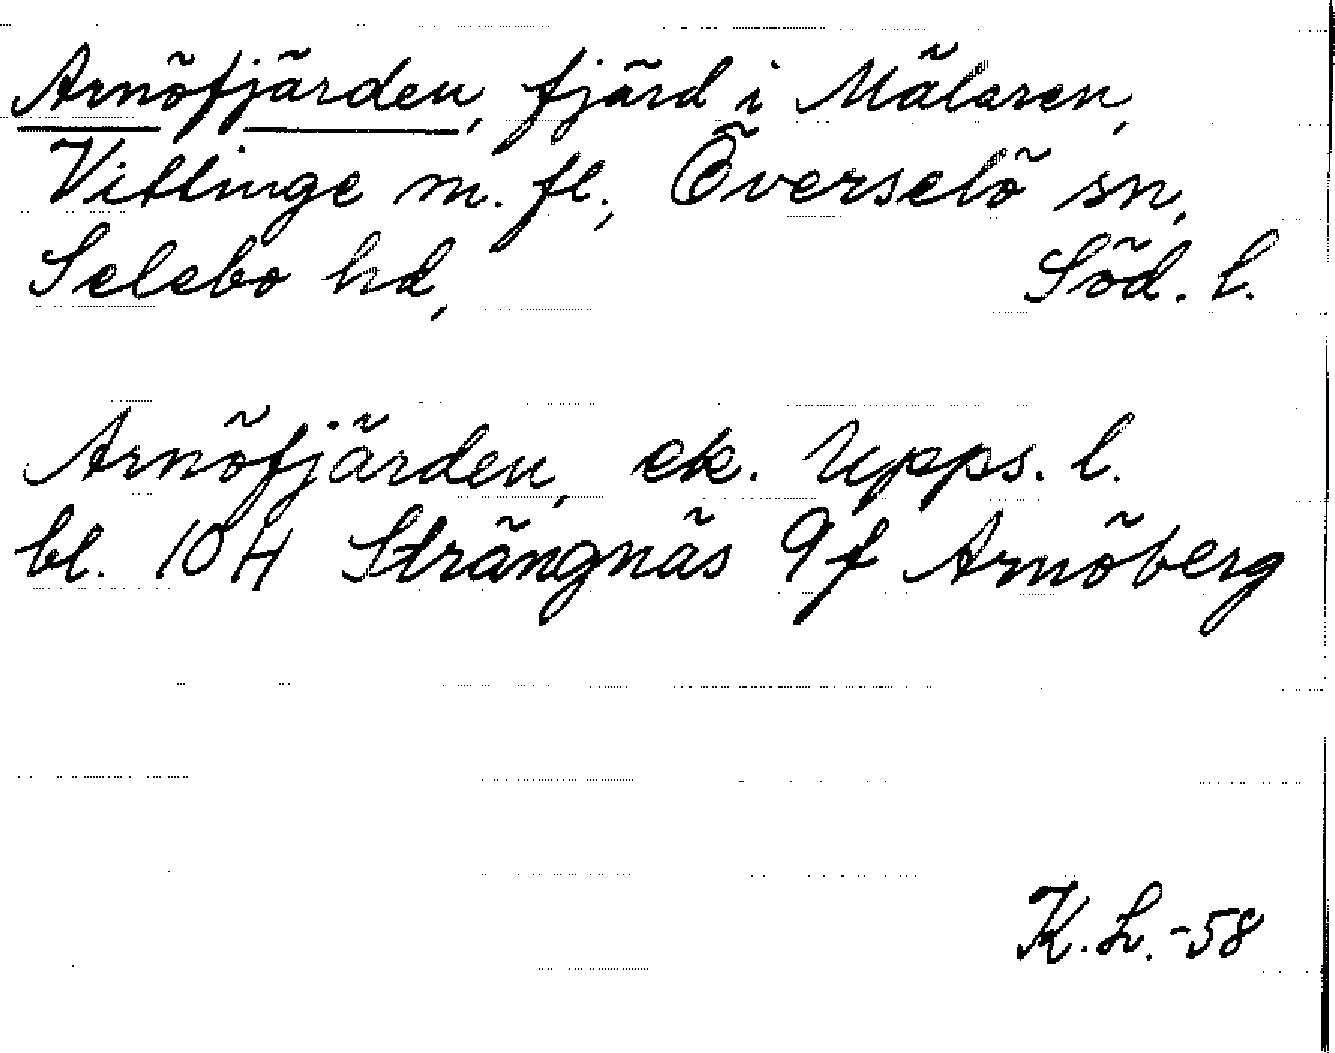 Arnöfjärden, fjärd i Mälaren,
Vittinge m. fl., Överselö sn,
Selebo hd, Söd. l.
Arnöfjärden, ek. Upps. l.
bl. 10 H Strängnäs 9f Arnöberg
K.L.-58